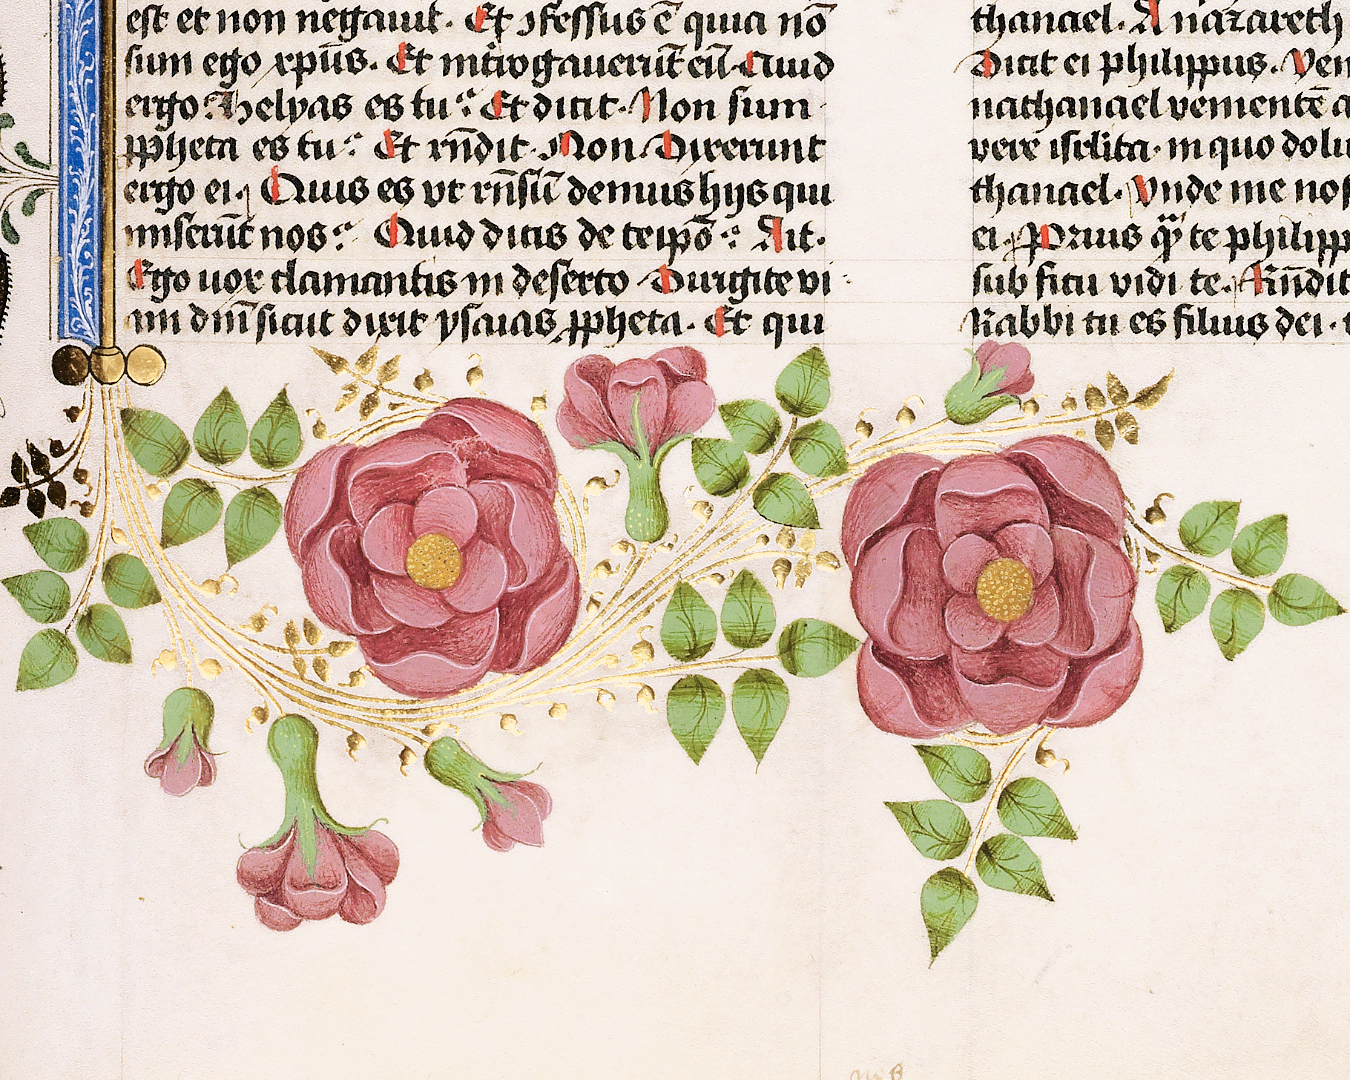 est et non negauit. Et ꝯfessus ē quia nō
sum ego xp̄us. Et int̄rogauerūt eū. Quid
ergo? Helyas es tu? Et dicit. Non sum
ꝓpheta es tu? Et rn̄dit. Non. Dixerunt
ergo ei. Quis es vt rn̄sū demus hijs qui
miserūt nos? Quid dicis de teip̄o? Ait.
Ego uox clamantis in deserto Dirigite vi
am dn̄i sicut dixit ysaias ꝓpheta. Et qui
thanael. A nazareth
Dicit ei philippus. Ven
nathanael venientē a
vere isr̄lita. in quo dolu
thanael. Vnde me nos
ei. Prius qͣ te philipp
sub ficu vidi te. Rn̄dit
Rabbi tu es filius dei. t